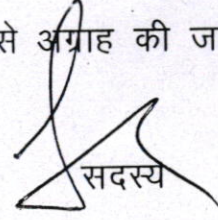 से अग्राह की ज
सदस्य